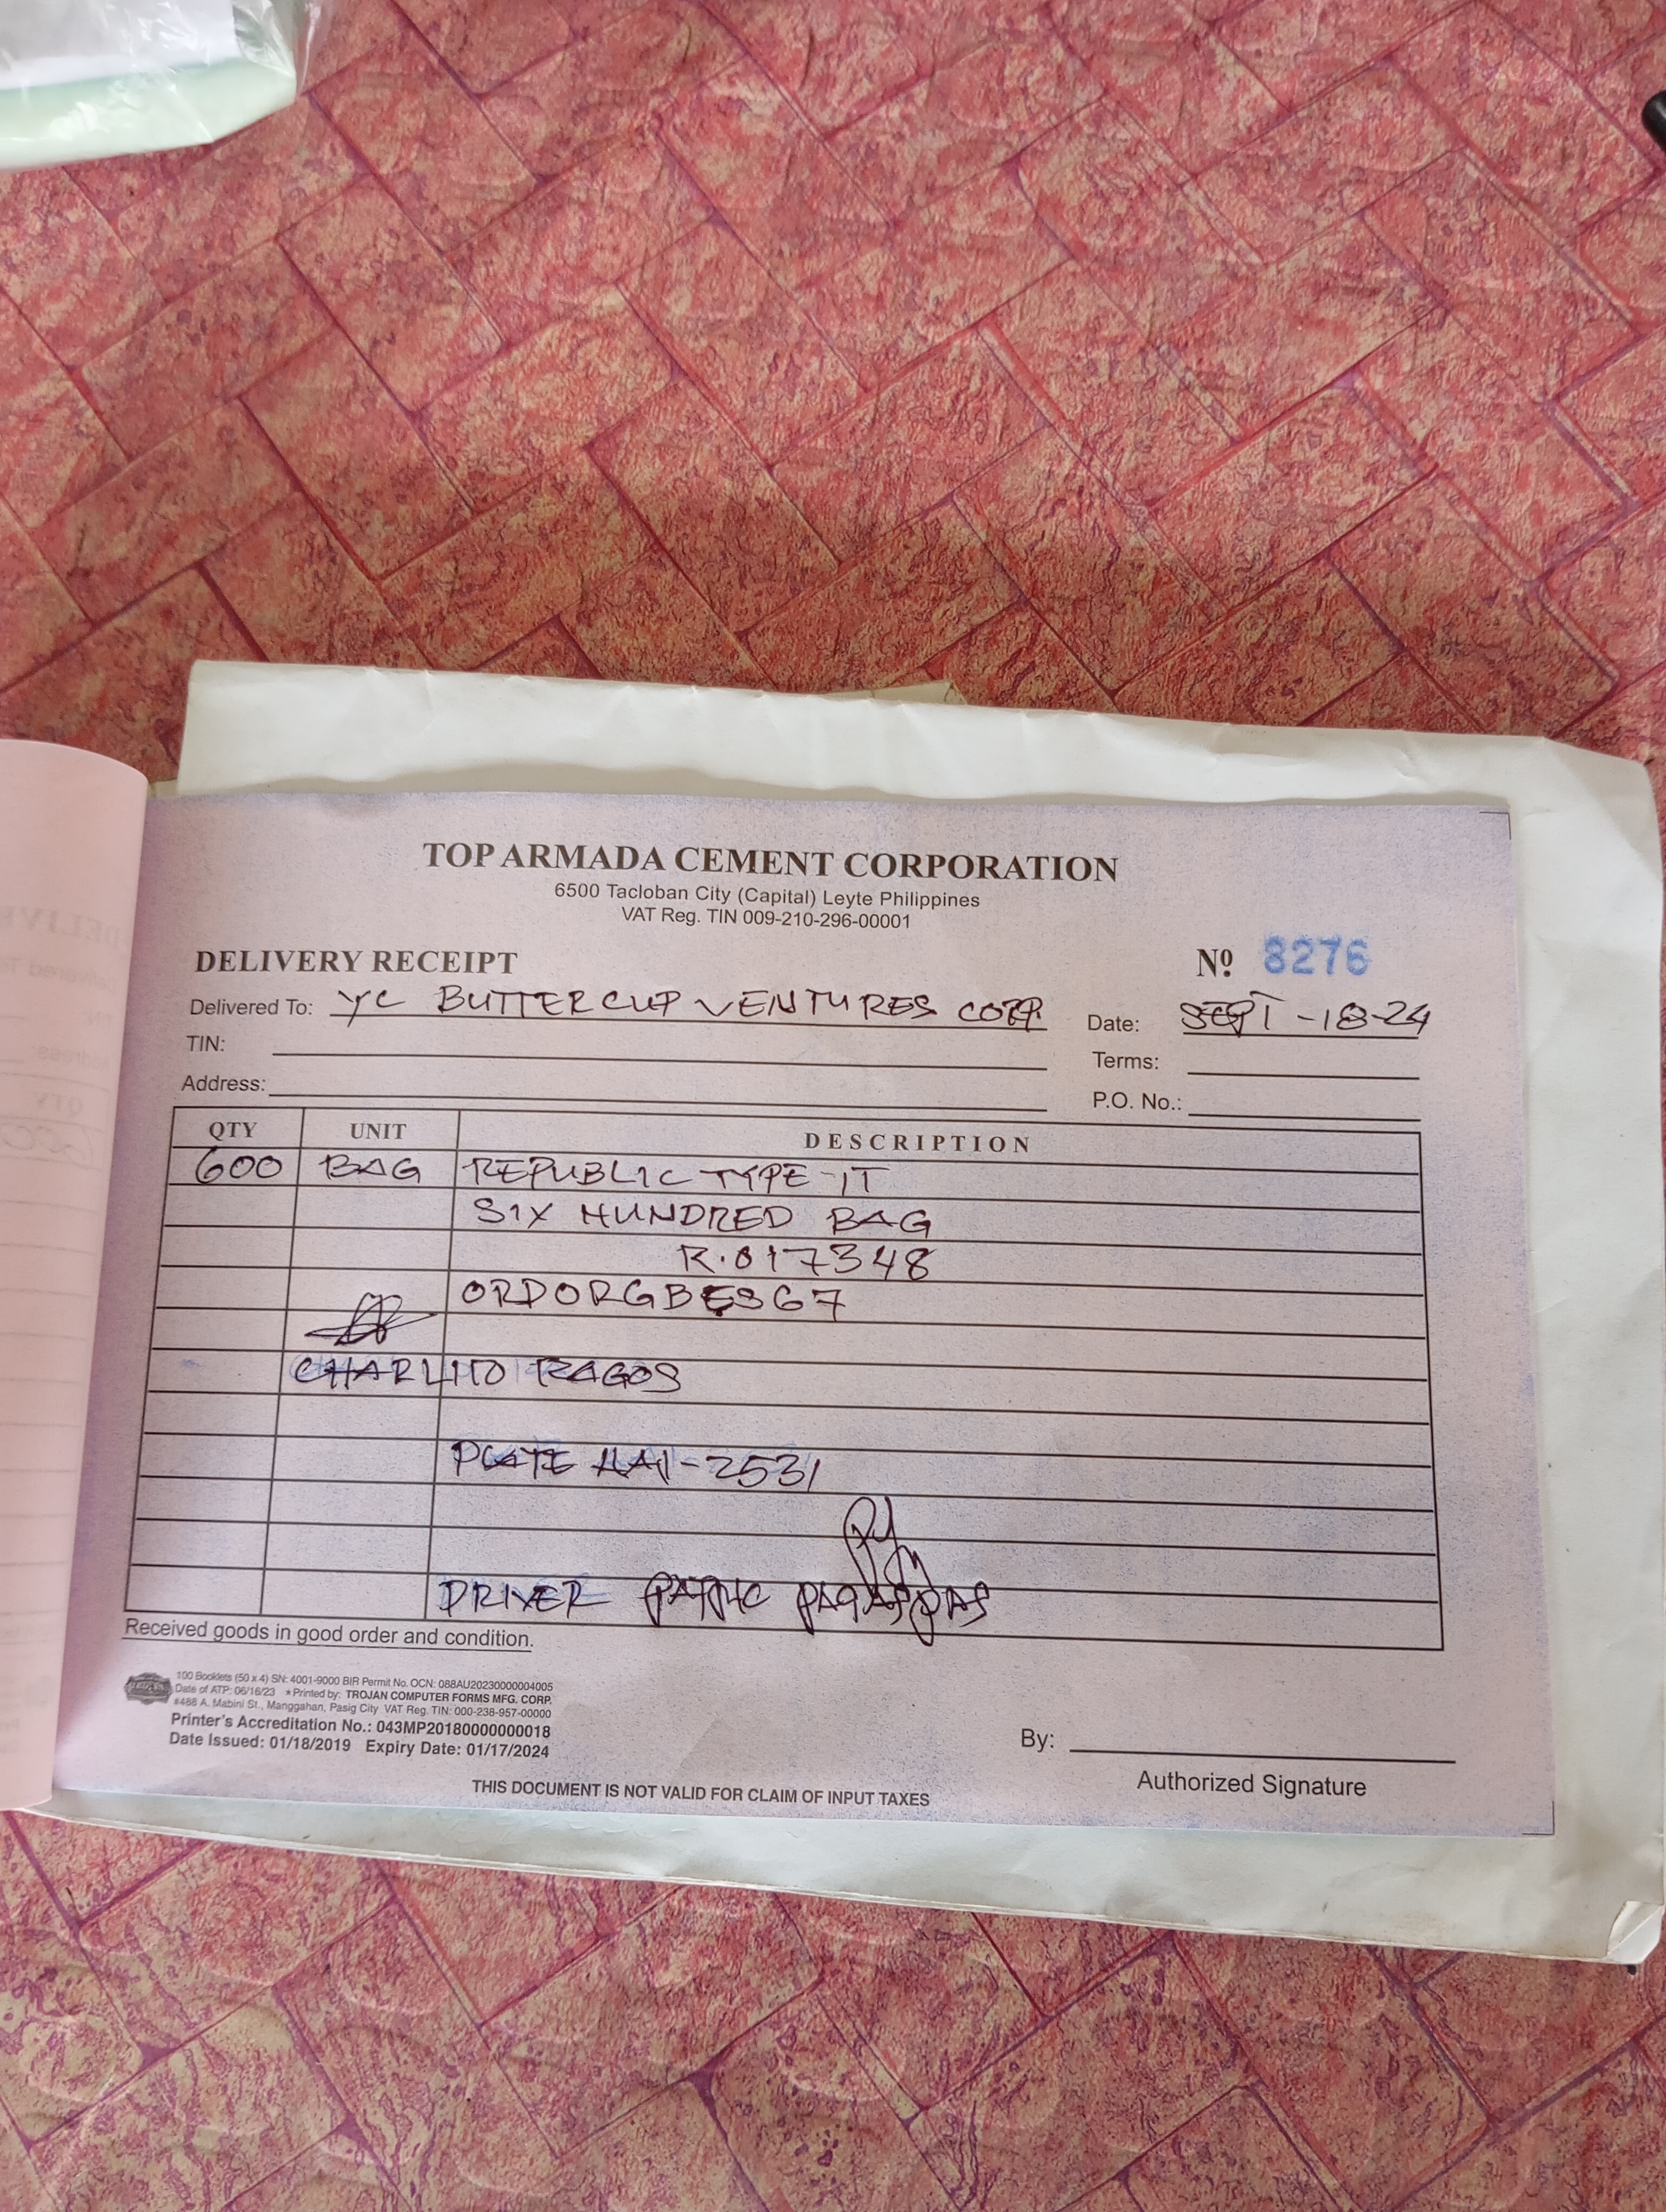 TOP ARMADA CEMENT CORPORATION
6500 Tacloban City (Capital) Leyte Philippines
VAT Reg. TIN 009-210-296-00001
DELIVERY RECEIPT Nº 8276
Delivered To: YC BUTTERCUP VENTURES CORP. Date: SEPT-18-24
TIN: Terms:
Address: P.O. No.:
QTY UNIT DESCRIPTION
600 BAG REPUBLIC TYPE-1T
SIX HUNDRED BAG
R.017348
CHARLITO RAGOS
PLATE HAI-2531
DRIVER
Received goods in good order and condition.
100 Booklets (50 x 4) SN: 4001-9000 BIR Permit No. OCN: 088AU20230000004005
Date of ATP: 06/16/23 *Printed by: TROJAN COMPUTER FORMS MFG. CORP.
#488 A. Mabini St., Manggahan, Pasig City VAT Reg. TIN: 000-238-957-00000
Printer's Accreditation No.: 043MP20180000000018
Date Issued: 01/18/2019 Expiry Date: 01/17/2024
By:
Authorized Signature
THIS DOCUMENT IS NOT VALID FOR CLAIM OF INPUT TAXES